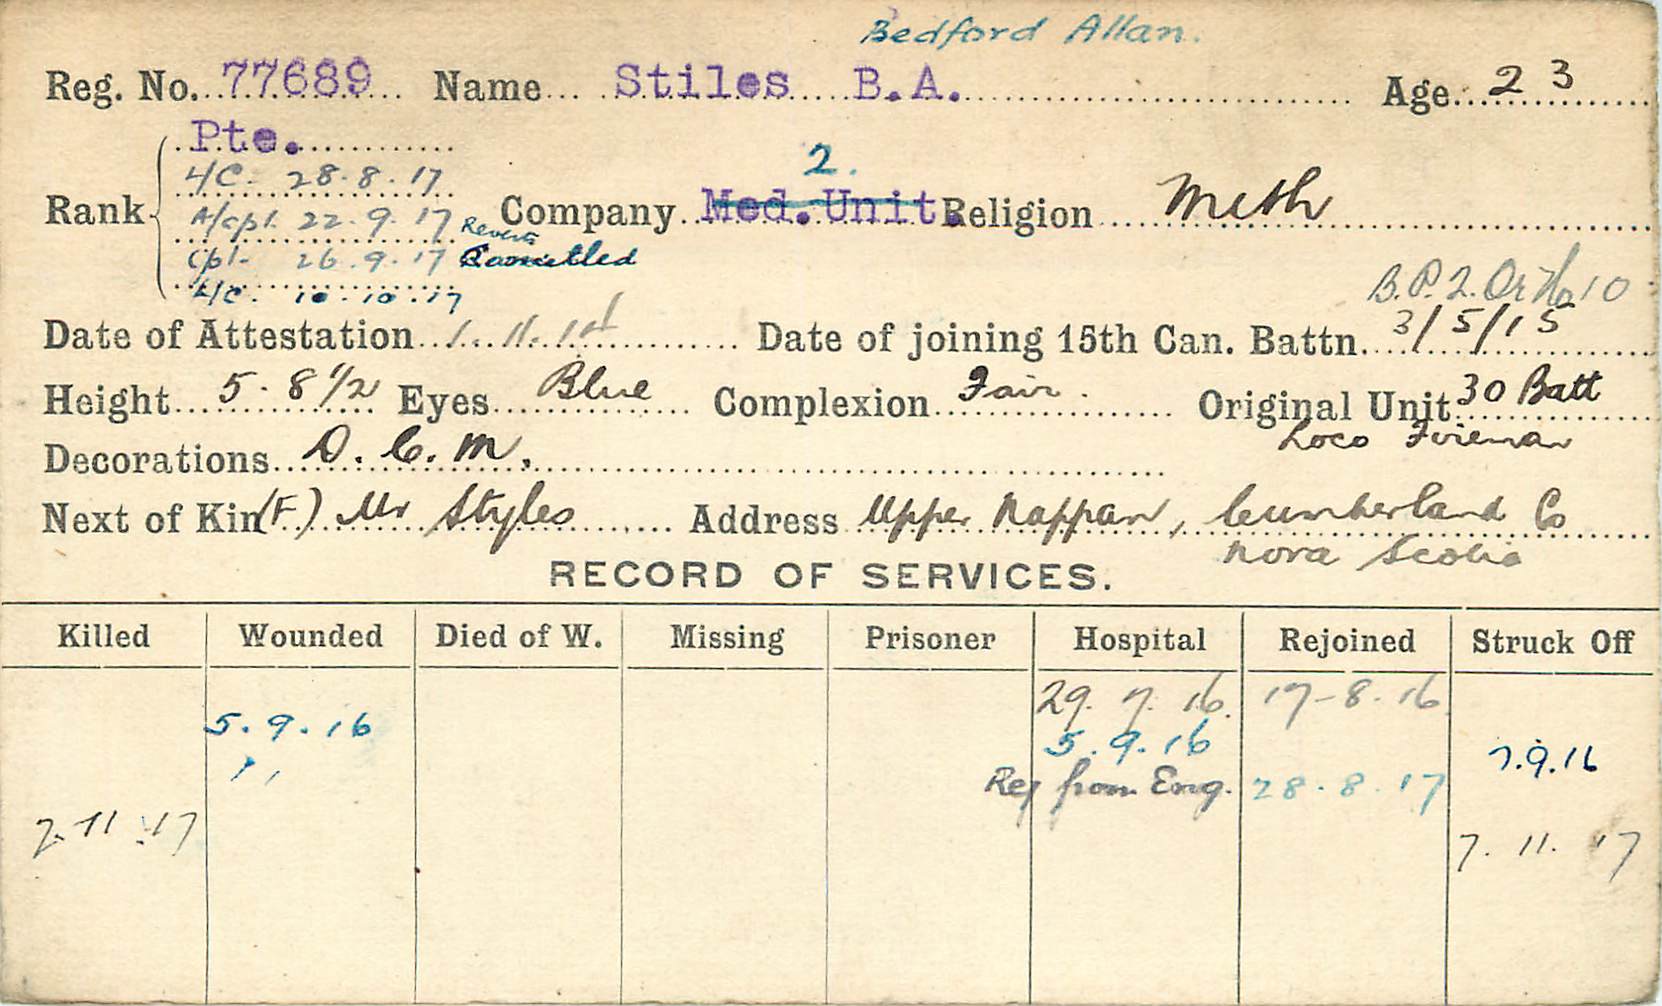 Bedford Allan.
Reg. No. 77689 Name Stiles B.A. Age 23
Pte.
L/C. 28.8.17
2.
Rank A/Cpl. 22.9.17 Reverts Company Med. Unit. Religion Meth
Cpl. 26.9.17 Cancelled
L/C. 10.10.17
B.P.2.Or No 10
Date of Attestation 1.11.14 Date of joining 15th Can. Battn. 3/5/15
Height 5.8 1/2 Eyes Blue Complexion Fair. Original Unit 30 Batt
Loco Fireman
Decorations D.C.M.
Next of Kin (F.) Mr Styles Address Upper Nappan, Cumberland Co
Nova Scotia
RECORD OF SERVICES.
Killed Wounded Died of W. Missing Prisoner Hospital Rejoined Struck Off
29.7.16. 17-8.16
5.9.16 5.9.16 7.9.16
Rej from Eng. 28.8.17
7.11.17 7.11.17